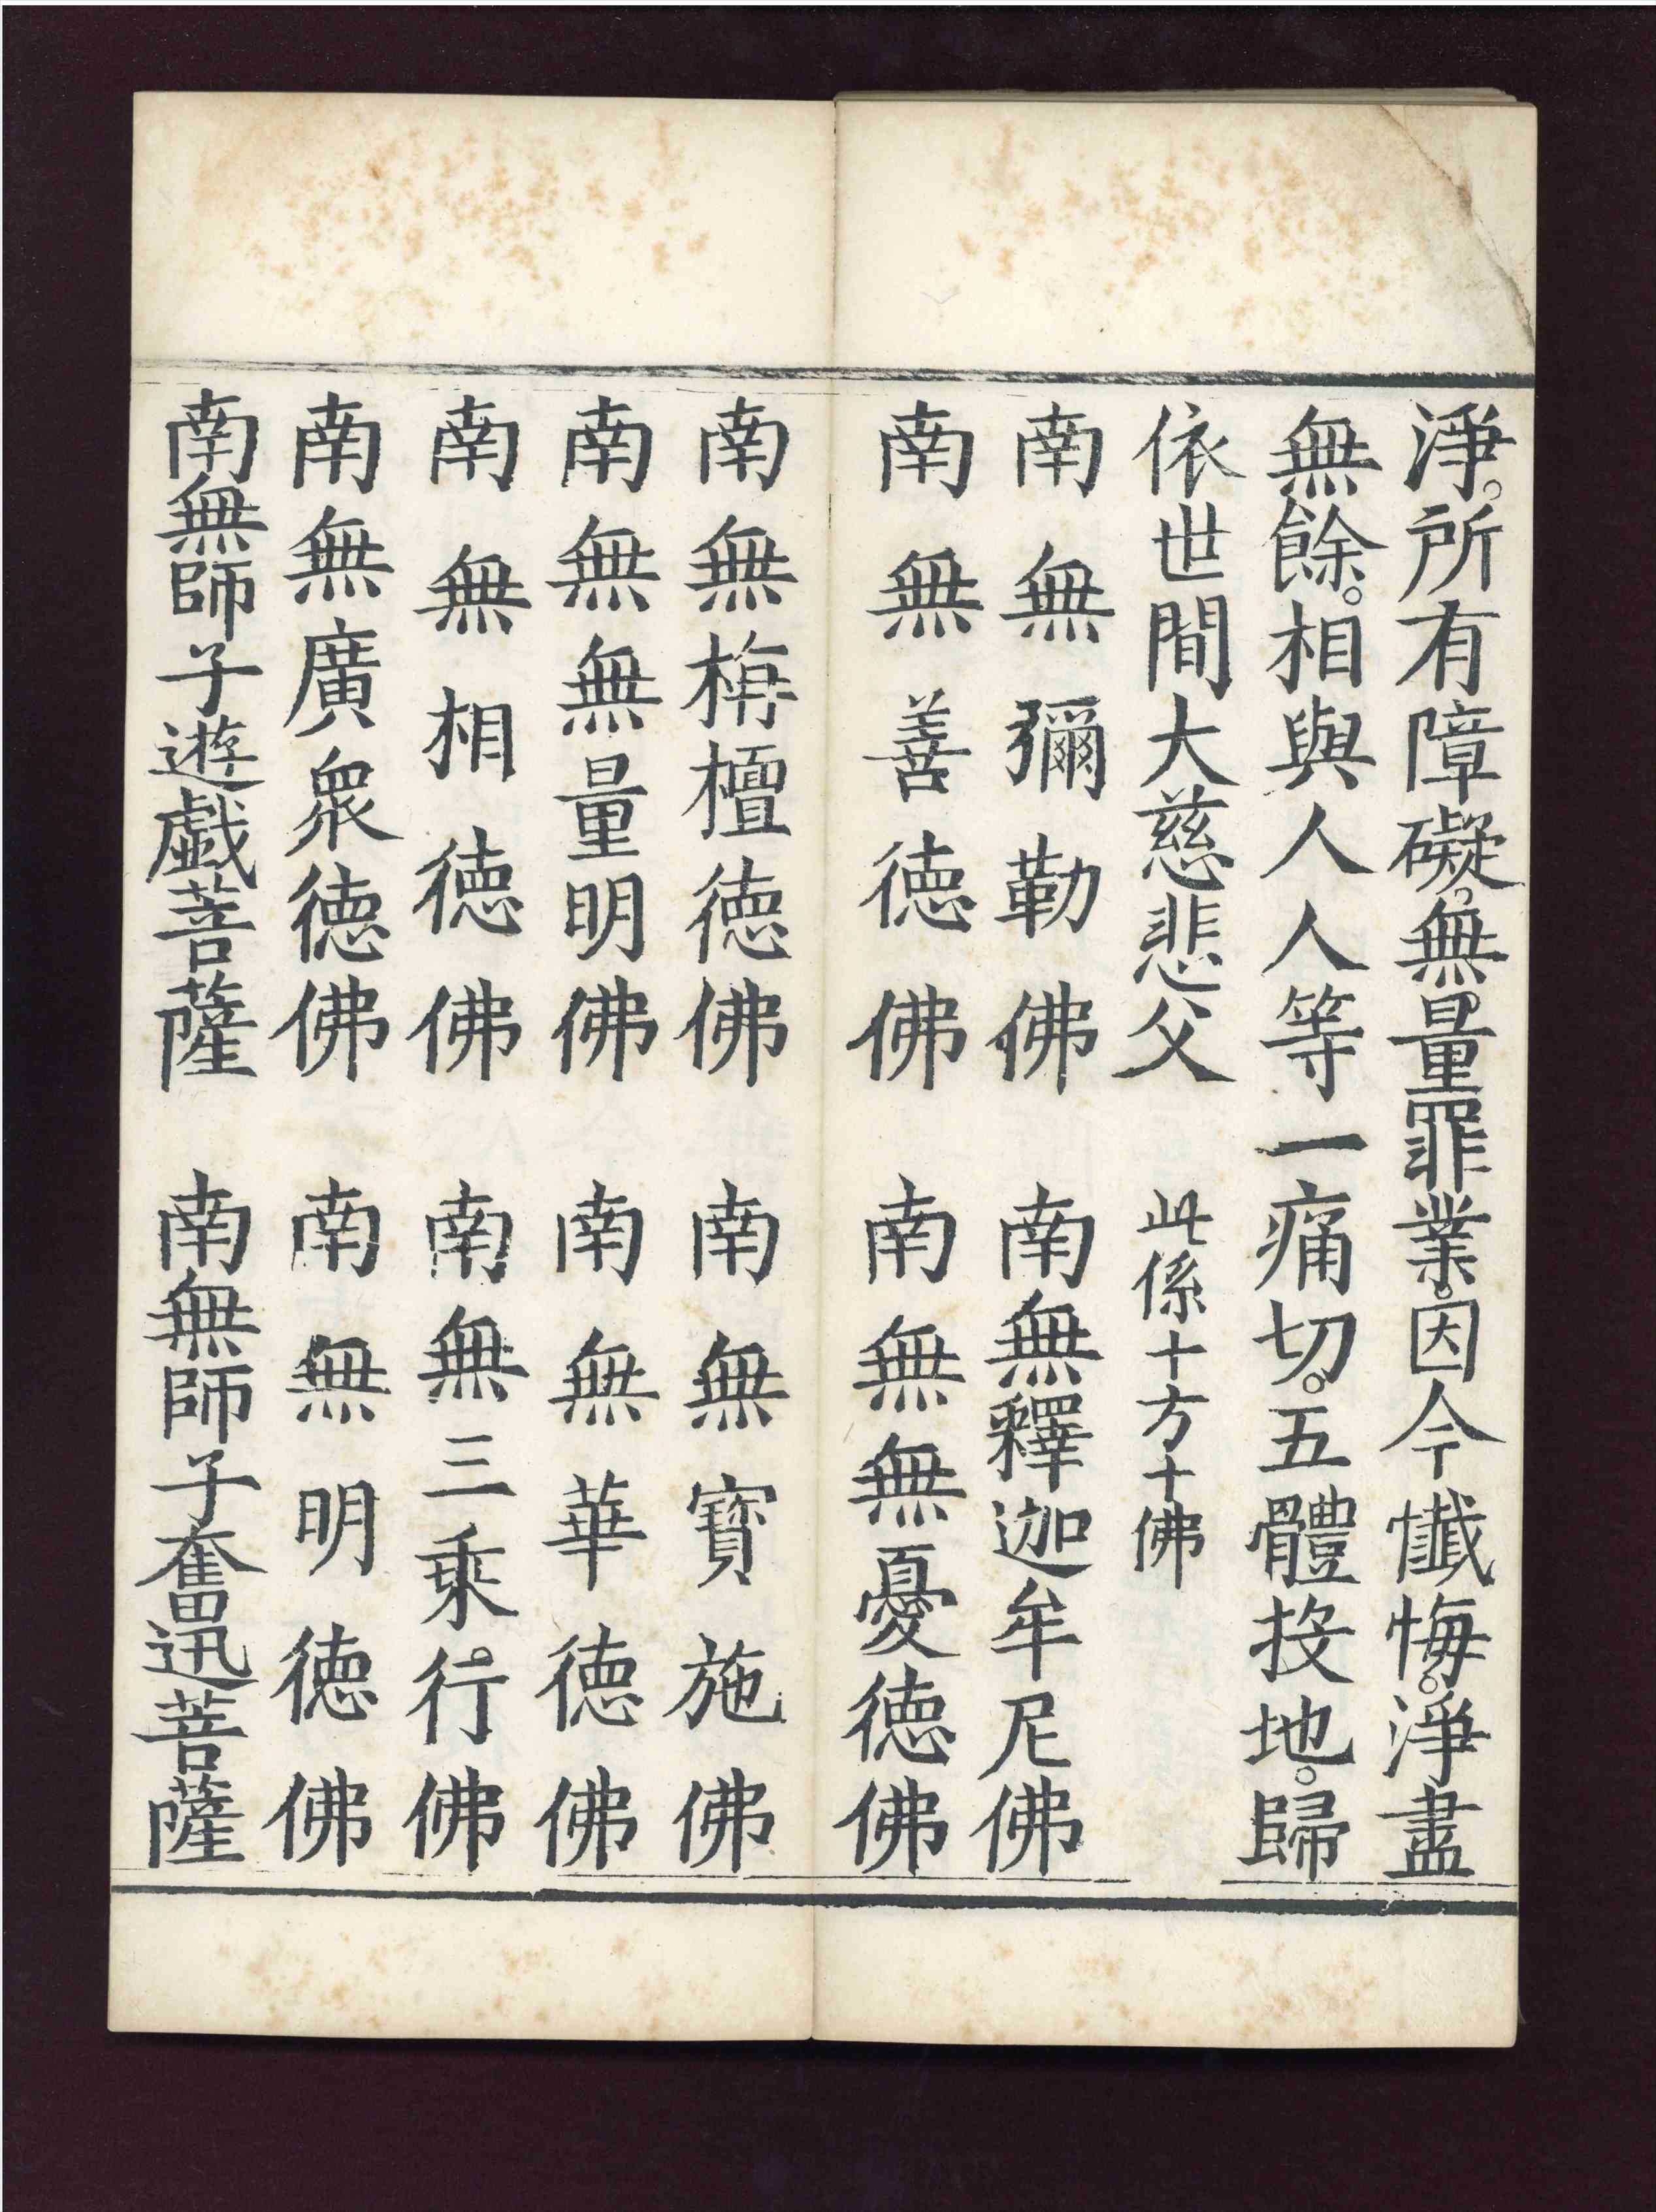 淨。所有障礙。無量罪業。因今懺悔。淨盡
無餘。相與人人等一痛切。五體投地。歸
依世間大慈悲父 此係十方十佛
南無彌勒佛 南無釋迦牟尼佛
南無善德佛 南無無憂德佛
南無栴檀德佛 南無寶施佛
南無無量明佛 南無華德佛
南無相德佛 南無三乘行佛
南無廣眾德佛 南無明德佛
南無師子遊戲菩薩 南無師子奮迅菩薩